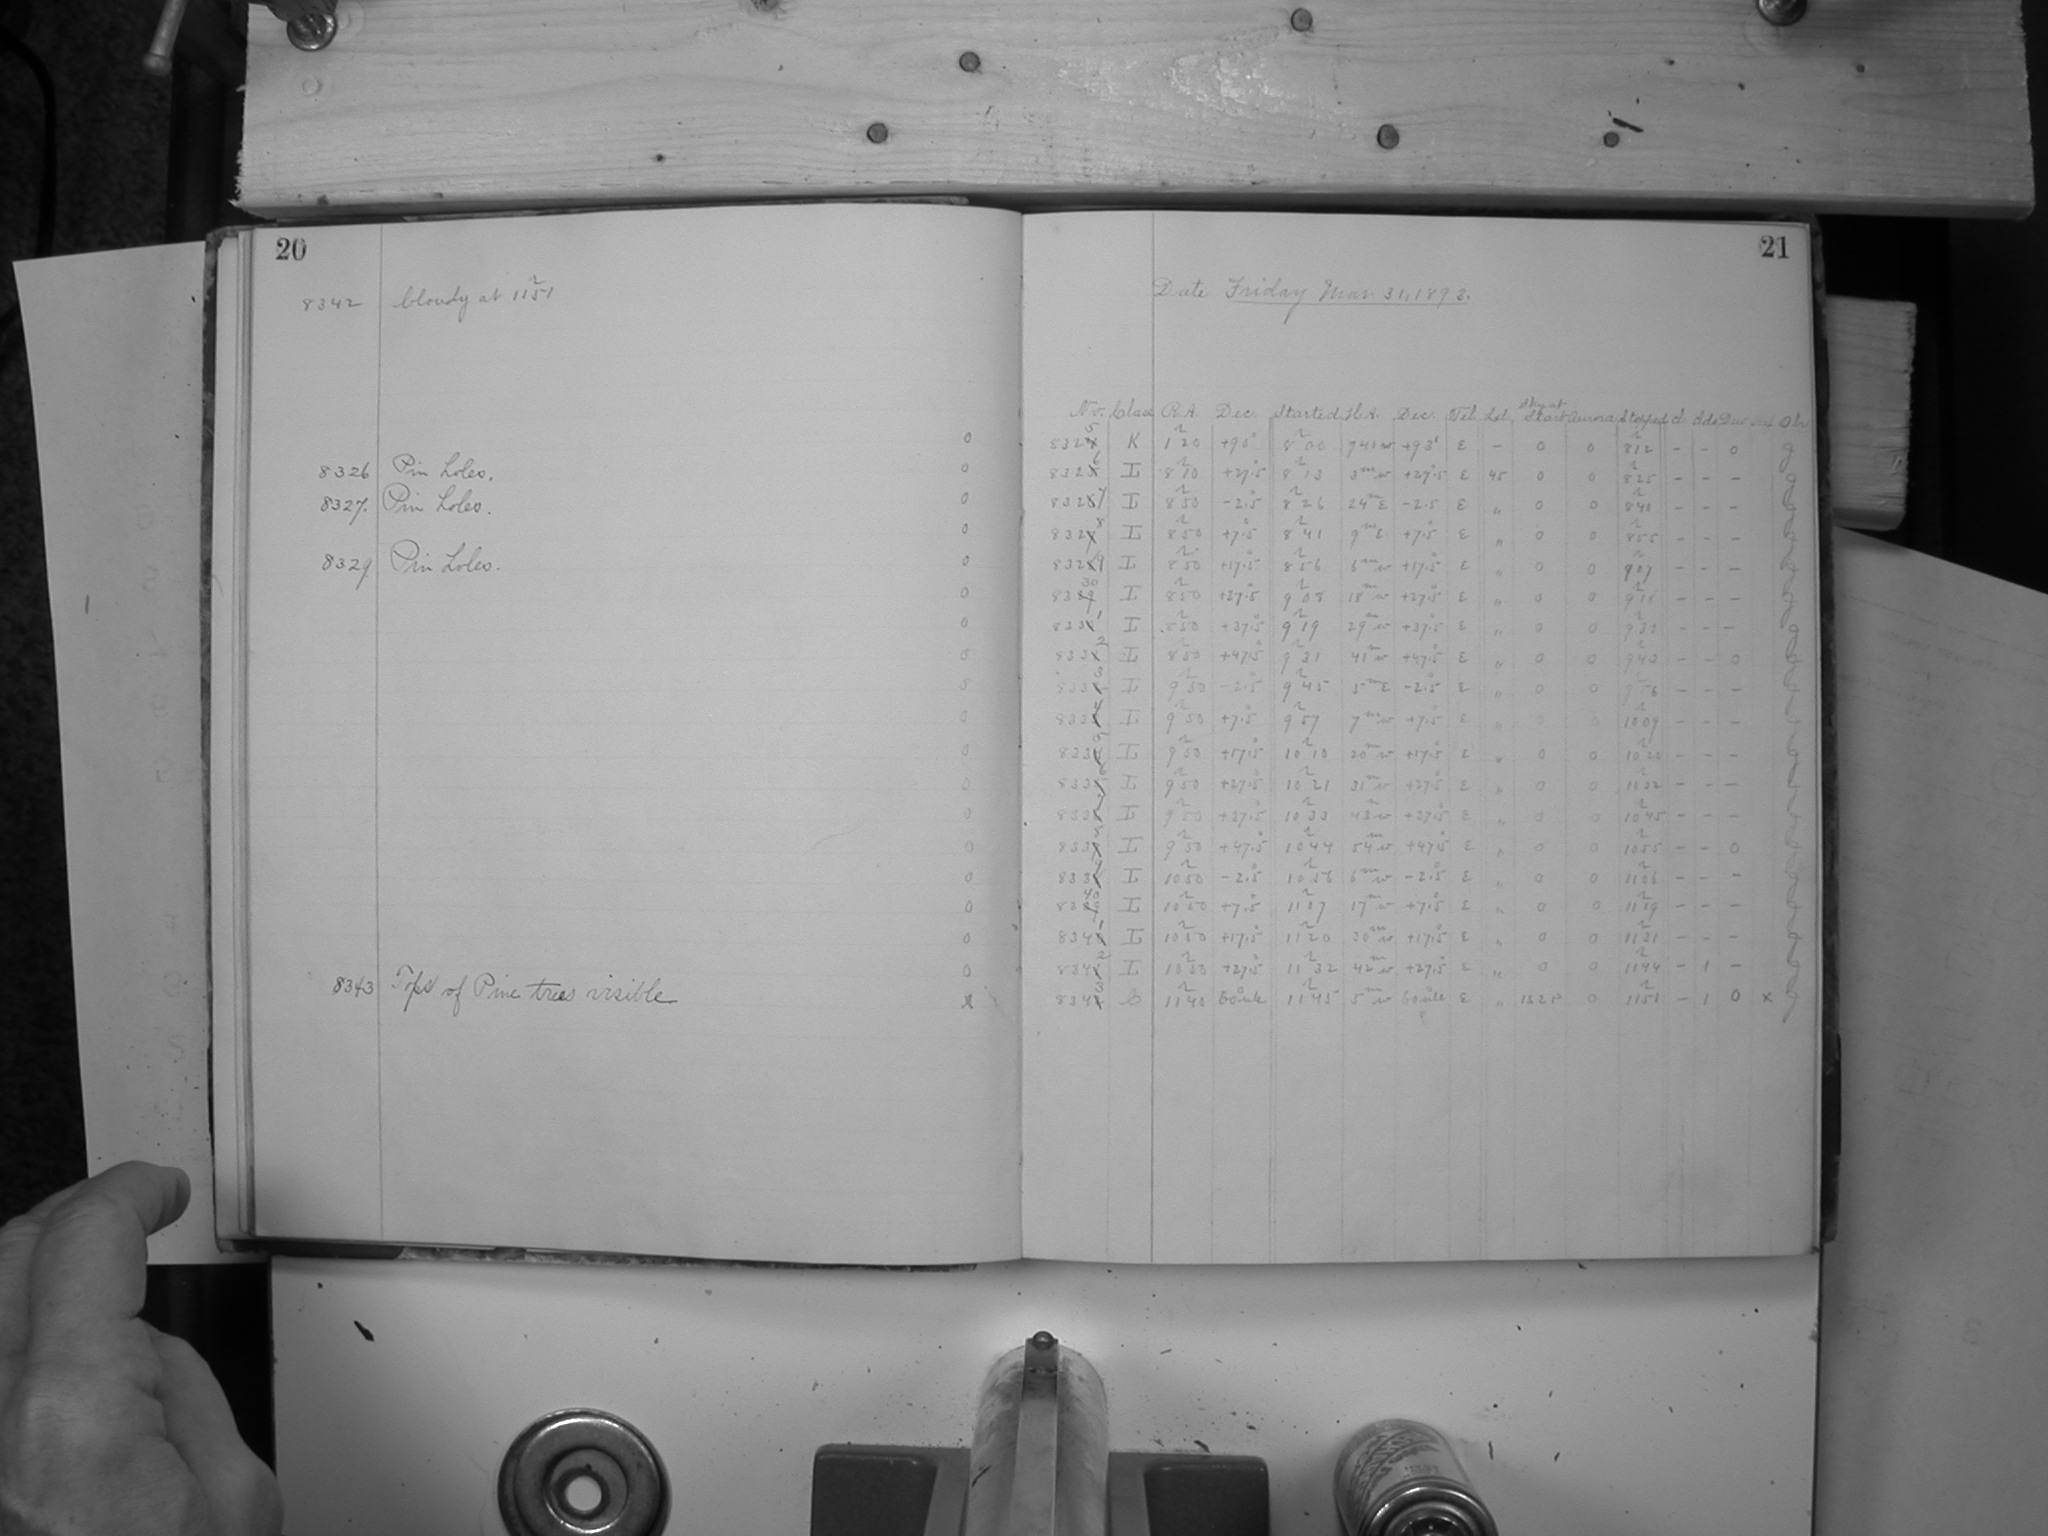 20
8342 Cloudy at 11h51
8326 Pin holes.
8327. Pin holes.
8329 Pin holes.
8343 Tops of Pine trees visible
21
Date Friday Mar. 31, 1893.
No. Class R.A. Dec. Started H.A. Dec. Tel Sky at Start Aurora Stopped
8325 K 1h20 +90° 8h00 940w +93° E - 0 0 8h12 - - 0
8326 L 8h10 +27.5 8h13 3m w +27.5 E 45 0 0 8h25 - - -
8327 L 8h50 -2.5 8h26 24m E -2.5 E " 0 0 8h40 - - -
8328 L 8h50 +7.5 8h41 9m E +7.5 E " 0 0 8h55 - - -
8329 L 8h50 +17.5 8h56 6m w +17.5 E " 0 0 9h07 - - -
8330 L 8h50 +27.5 9h08 18m w +27.5 E " 0 0 - - -
8331 L 8h50 +37.5 9h19 29m w +37.5 E " 0 0 9h30 - - -
8332 L 8h50 +47.5 9h31 41m w +47.5 E " 0 0 9h43 - - 0
8333 L 9h50 -2.5 9h45 5m E -2.5 E " 0 0 9h56 - - -
8334 L 9h50 +7.5 9h57 7m w +7.5 E " 0 0 10h09 - - -
8335 L 9h50 +17.5 10h10 20m w +17.5 E " 0 0 10h20 - - -
8336 L 9h50 +27.5 10h21 31m w +27.5 E " 0 0 10h32 - - -
8337 L 9h50 +37.5 10h33 43m w +37.5 E " 0 0 10h45 - - -
8338 L 9h50 +47.5 10h44 54m w +47.5 E " 0 0 10h55 - - 0
8339 L 10h50 -2.5 10h56 6m w -2.5 E " 0 0 11h06 - - -
8340 L 10h50 +7.5 11h07 17m w +7.5 E " 0 0 11h19 - - -
8341 L 10h50 +17.5 11h20 30m w +17.5 E " 0 0 11h31 - - -
8342 L 10h50 +27.5 11h32 42m w +27.5 E " 0 0 11h44 - 1 -
8343 C 11h40 11h45 5m w E " 0 11h51 - 1 0 x